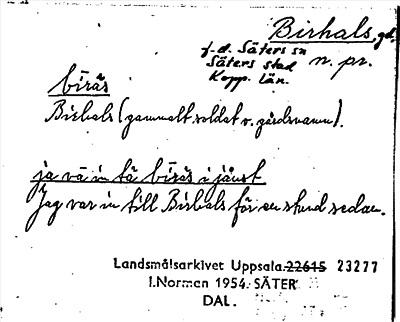 Birhals, gd.
f.d. Säters sn n. pr.
Säters stad
Kopp. län.
bīräs
Birhals (gammalt soldat o. gårdsnamn).
ja vā in tå bīräs i jåust
Jag var in till Birhals för en stund sedan.
Landsmålsarkivet Uppsala 22615 23277
I. Norman 1954. SÄTER
DAL.